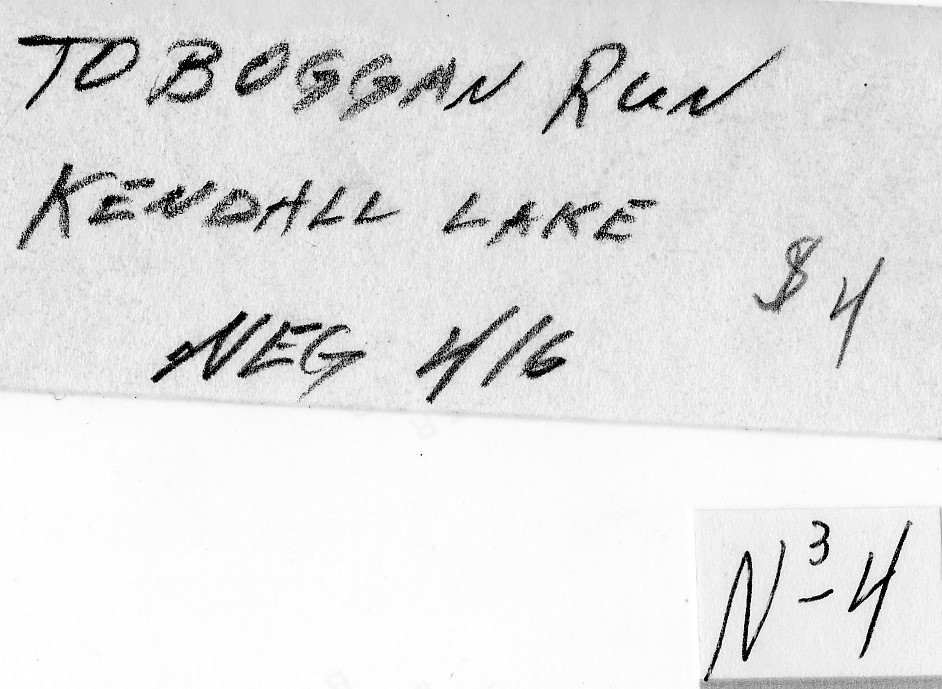 TOBOGGAN RUN
KENDALL LAKE
$4
NEG 416
N³-4